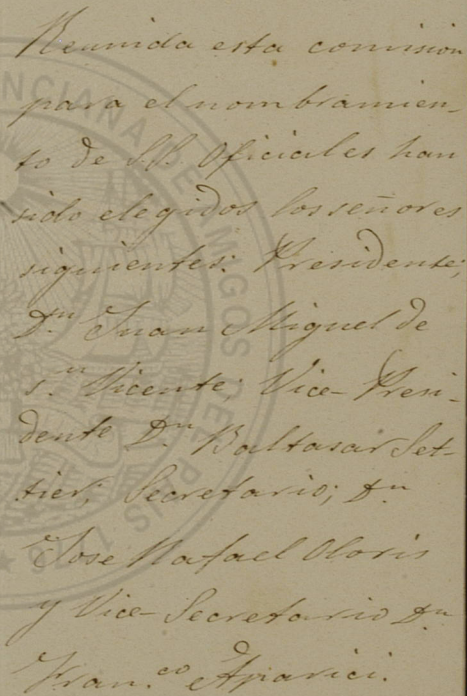 Reunida esta comision
para el nombramien-
to de SS. Oficiales han
sido elegidos los señores
siguientes: Presidente;
Dn Juan Miguel de
sn. Vicente; Vice-Presi-
dente Dn Baltasar Set-
tier; Secretario; Dn
Jose Rafael Oloris
y Vice-Secretario Dn
Fran.co Aparici.
ENCIANA DE AMIGOS DEL PAIS